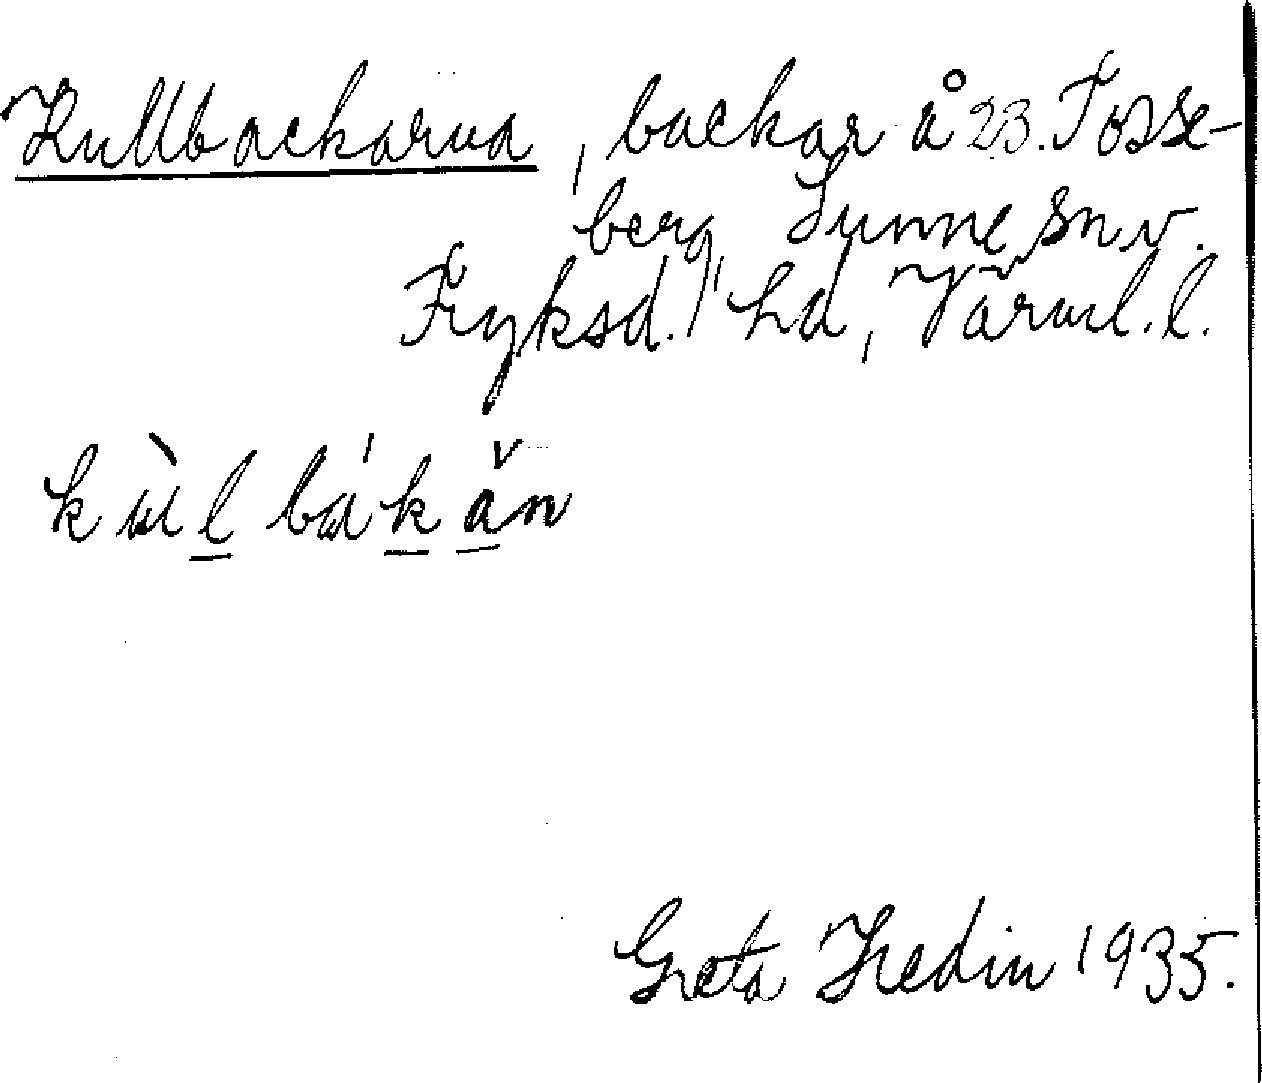 Kullbackarna, backar å 23. Fosse-
berg, Sunne sn.v.
Fryksd. hd, Värml. l.
kùl bákăn
Greta Hedin 1935.